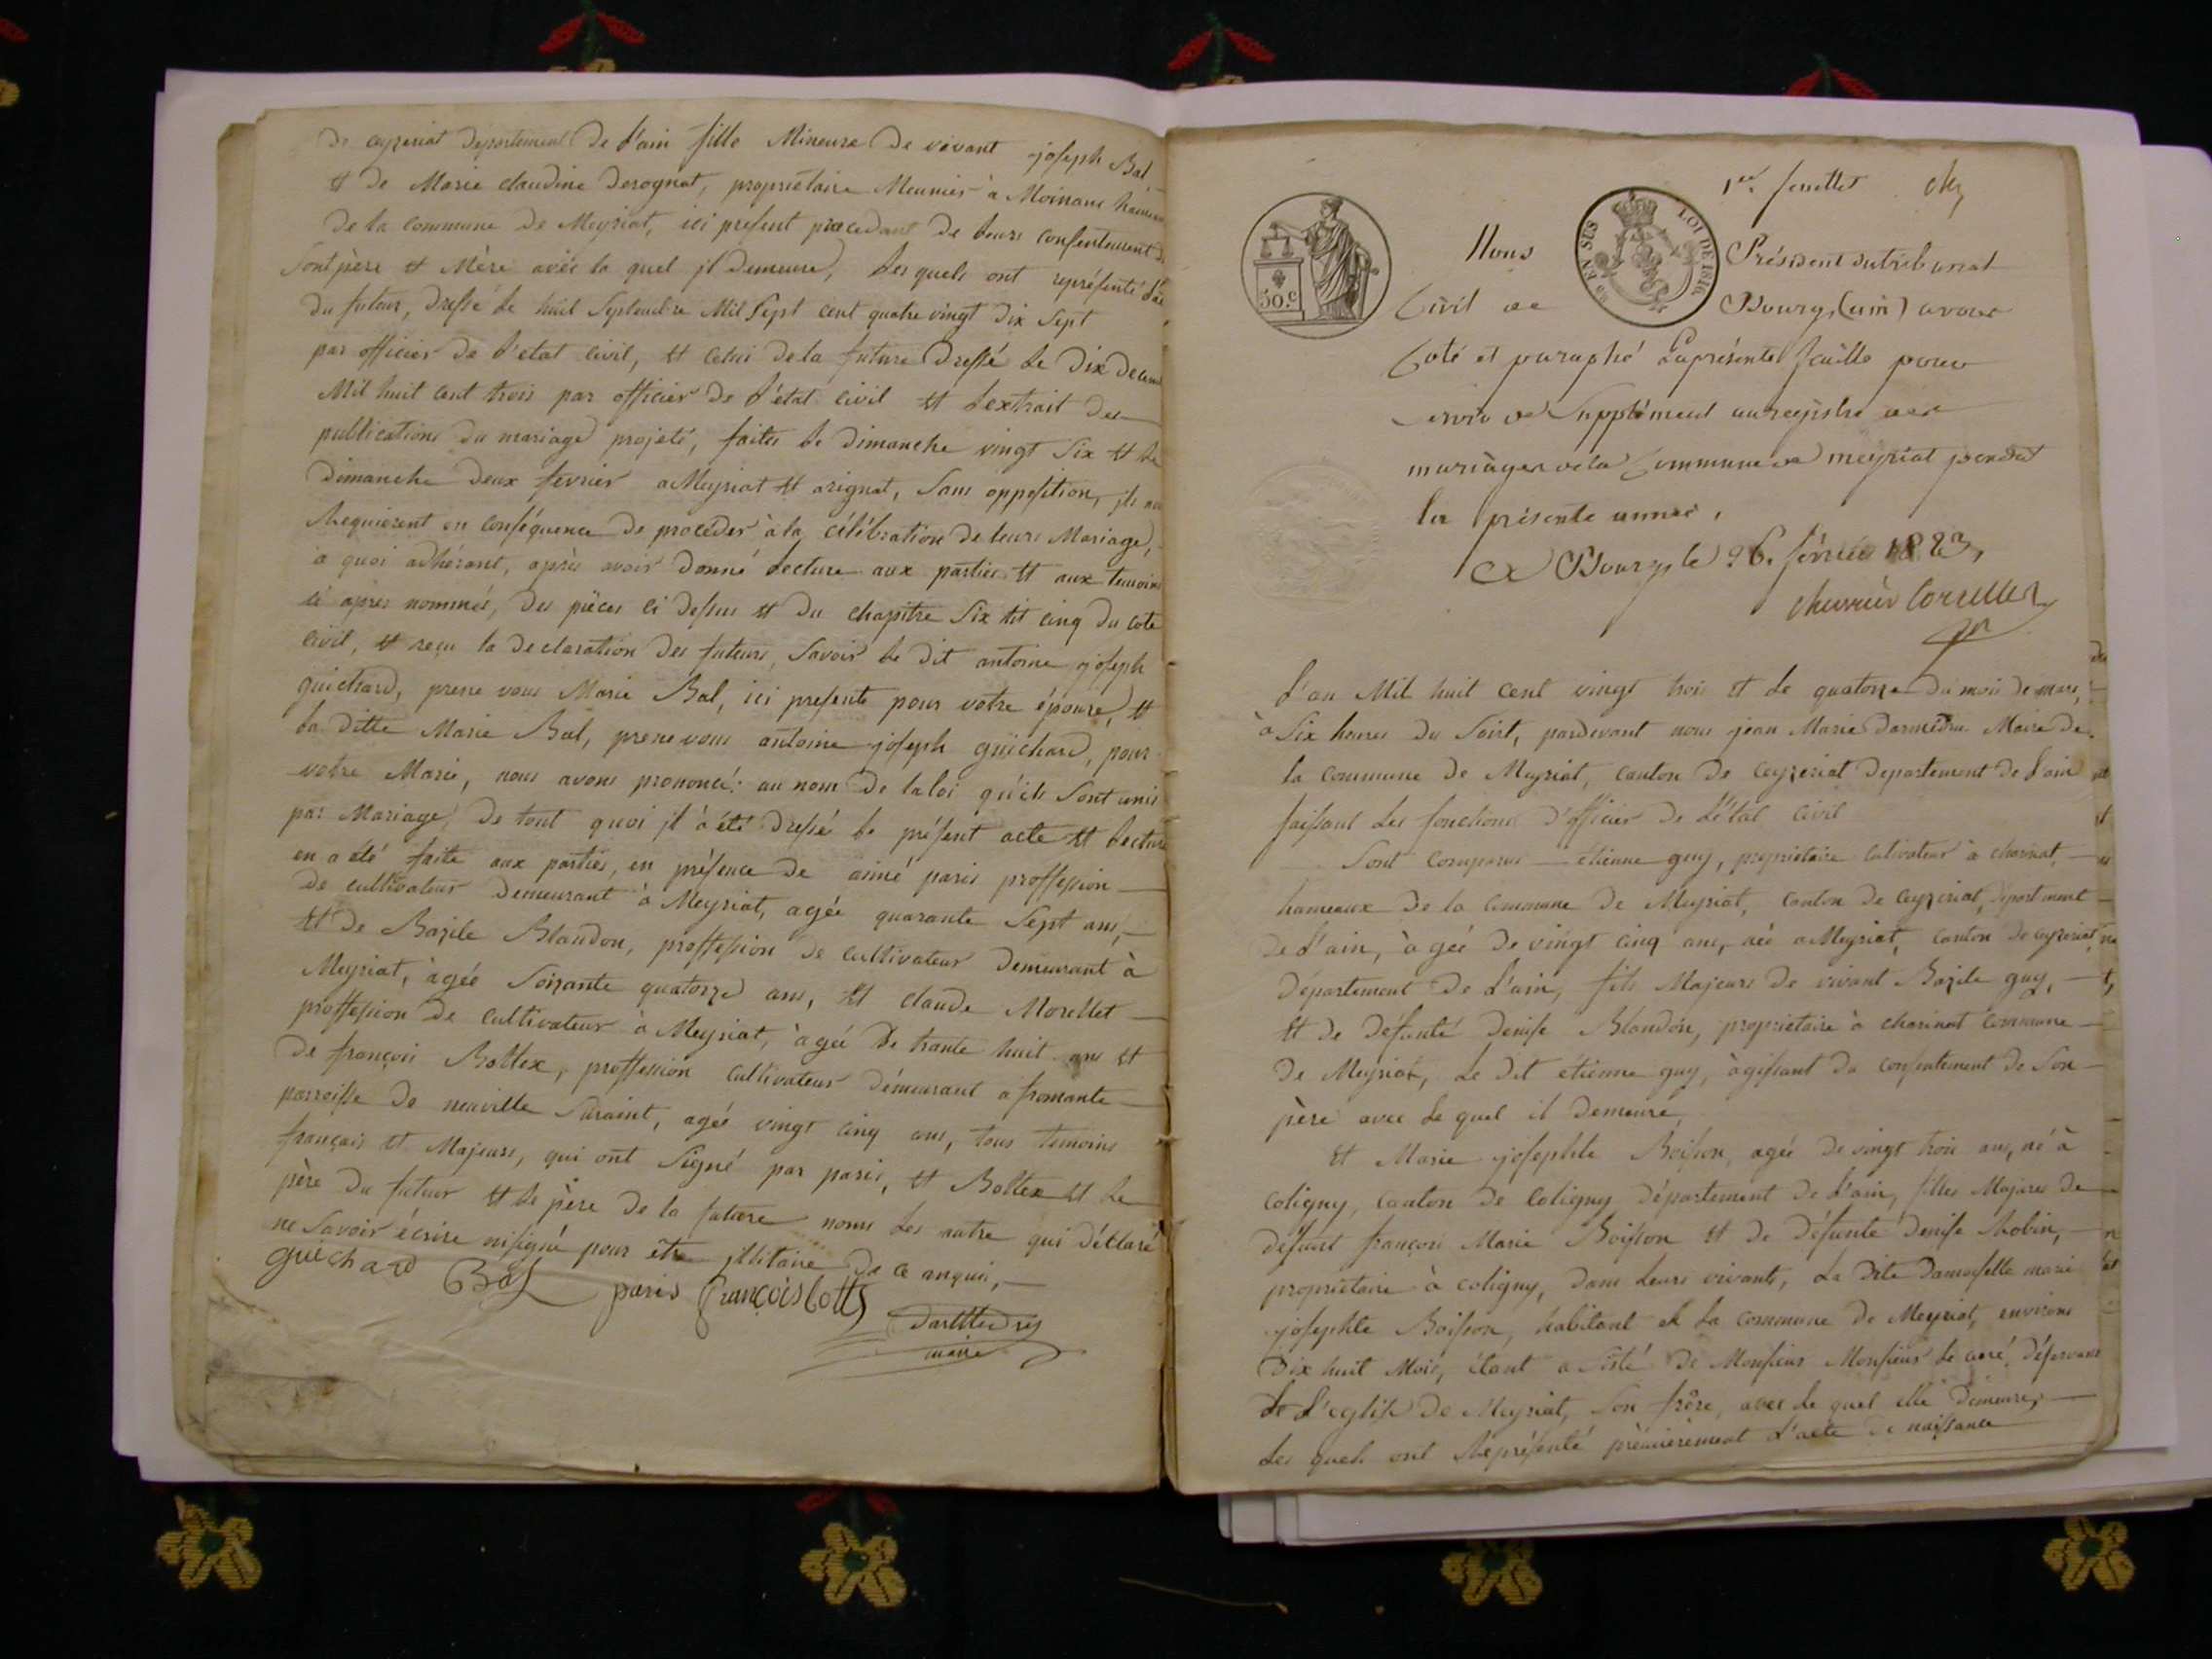 de ceyzeriat département de l'ain fille Mineure de vivant joseph Bal
et de Marie claudine derognat, propriétaire Meunier à Moinans hameau
de la commune de Meyriat, ici present procedant de leurs consentement
Sont père et Mère avec la quel jl demeure, les quels ont représenté
du futur, dressé le huit Septembre Mil Sept cent quatre vingt dix Sept
par officier de l'etat civil, et celui de la future dressé le dix decem
Mil huit cent trois par officier de l'état civil et l'extrait des
publications du mariage projeté, faites le dimanche vingt Six et le
dimanche deux fevrier a Meyriat et arignat, Sans opposition, jls
Requierent en conséquence de procéder à la célébration de leurs Mariage,
a quoi adhérant, après avoir donné lecture aux parties et aux temoins
ci apres nommés, des pièces ci dessus et du chapitre Six tit cinq du cote
civil, et reçu la declaration des futurs, Savoir le dit antoine joseph
guichard, prene vous Marie Bal, ici presente pour votre épouse, et
la ditte Marie Bal, prene vous antoine joseph guichard, pour
votre Marie, nous avons prononcé: au nom de la loi qu'ils Sont unis
par Mariage, de tout quoi jl a été dressé le présent acte et lecture
en a été faite aux parties, en présence de aimé paris proffession
de cultivateur demeurant à Meyriat, agée quarante Sept ans,
et de Bazile Blandon, proffession de cultivateur demeurant à
Meyriat, àgée Soizante quatorze ans, et claude Morellet
proffession de cultivateur à Meyriat, àgée de trante huit ans et
de françois Bottex, proffession cultivateur démeurant a fromante
parroisse de neuville Suraint, agée vingt cinq ans, tous temoins
français et Majeurs, qui ont Signé par paris, et Bottex et le
père du futur et le père de la future nonts les autre qui déclaré
ne Savoir écrire nisigné pour être jllitaire de ce anquis,
guichard Bal paris françois bottex
Darmedru
maire
1er feuillet
50.c
LOI DE 1816
Nous Président du tribunal
Civil de Bourg, (ain) avons
Coté et paraphé La présente feuille pour
servir de Supplément au registre des
mariages de la Commune de meyriat pendant
la présente année,
A Bourg le 26. février 1823,
chevrier Corcelles
L'an Mil huit cent vingt trois et le quatorze du mois de mars,
à Six heures du Soirt, pardevant nous jean Marie Darmedru Maire de
la commune de Meyriat, canton de ceyzeriat departement de l'ain
faissant les fonctions d'officier de L'état civil
Sont comparus étienne guy, propriétaire cultivateur à charinat,
hameaux de la commune de Meyriat, canton de ceyzeriat, département
de l'ain, àgéé de vingt cinq ans, née a Meyriat, canton de ceyzeriat
département de L'ain, fils Majeurs de vivant Bazile guy,
et de défunte denise Blandon, propriétaire à charinat commune
de Meyriat, Le dit étienne guy, àgissant du consentement de Son
père avec Le quel il demeure,
et Marie josephte Boisson, agée de vingt trois ans, né à
coligny, canton de coligny département de l'ain, filles Majeres de
défunt françois Marie Boisson et de défunte denise Robin,
propriétaire à coligny, dans leurs vivants, La dite damoiselle marie
josephte Boisson, habitant el La commune de Meyriat, environs
dix huit Mois, étant a sisté de Monsieur Monsieur le curé, désservant
de L'eglise de Meyriat, Son frère, avec Le quel elle demeure,
Les quels ont Représenté prèmièrement L'acte de naissance